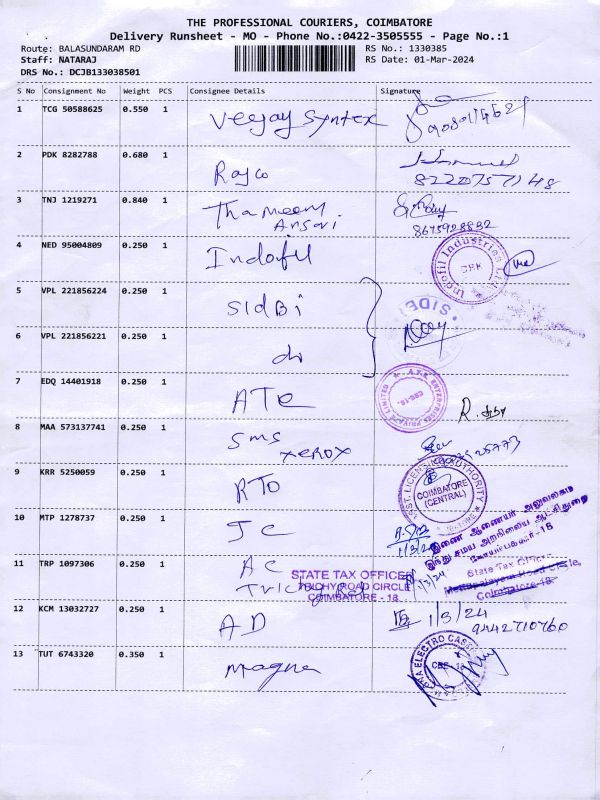 THE PROFESSIONAL COURIERS, COIMBATORE
Delivery Runsheet - MO - Phone No.:0422-3505555 - Page No.:1
Route: BALASUNDARAM RD
RS No.: 1330385
Staff: NATARAJ
RS Date: 01-Mar-2024
DRS No.: DCJB133038501
S No Consignment No Weight PCS Consignee Details Signature
1 TCG 50588625 0.550 1 Veejay Syntex
2 PDK 8282788 0.680 1 Rajco
8220757148
3 TNJ 1219271 0.840 1 Thameem
Ansari
8675928832
4 NED 95004809 0.250 1 Indofil
Indofil Industries Ltd
CBE
5 VPL 221856224 0.250 1 SIdBi
SIDBI
6 VPL 221856221 0.250 1 do
7 EDQ 14401918 0.250 1 ATE
A.T.E. ENTERPRISES PRIVATE LIMITED
CBE-18.
8 MAA 573137741 0.250 1 Sms
xerox
9 KRR 5250059 0.250 1 RTO
ASST. LICENSING AUTHORITY
COIMBATORE
(CENTRAL)
10 MTP 1278737 0.250 1 JC
இணை ஆணையர் அலுவலகம்
இந்து சமய அறநிலைய ஆட்சிதுறை
கோயமுத்தூர்-18
11 TRP 1097306 0.250 1 AC
STATE TAX OFFICER
TRICHY ROAD CIRCLE
COIMBATORE - 18.
State Tax Officer
Mettupalayam Road Circle,
Coimbatore-18.
12 KCM 13032727 0.250 1 AD
1/3/24
9442710760
13 TUT 6743320 0.350 1 Magna
CBE-18